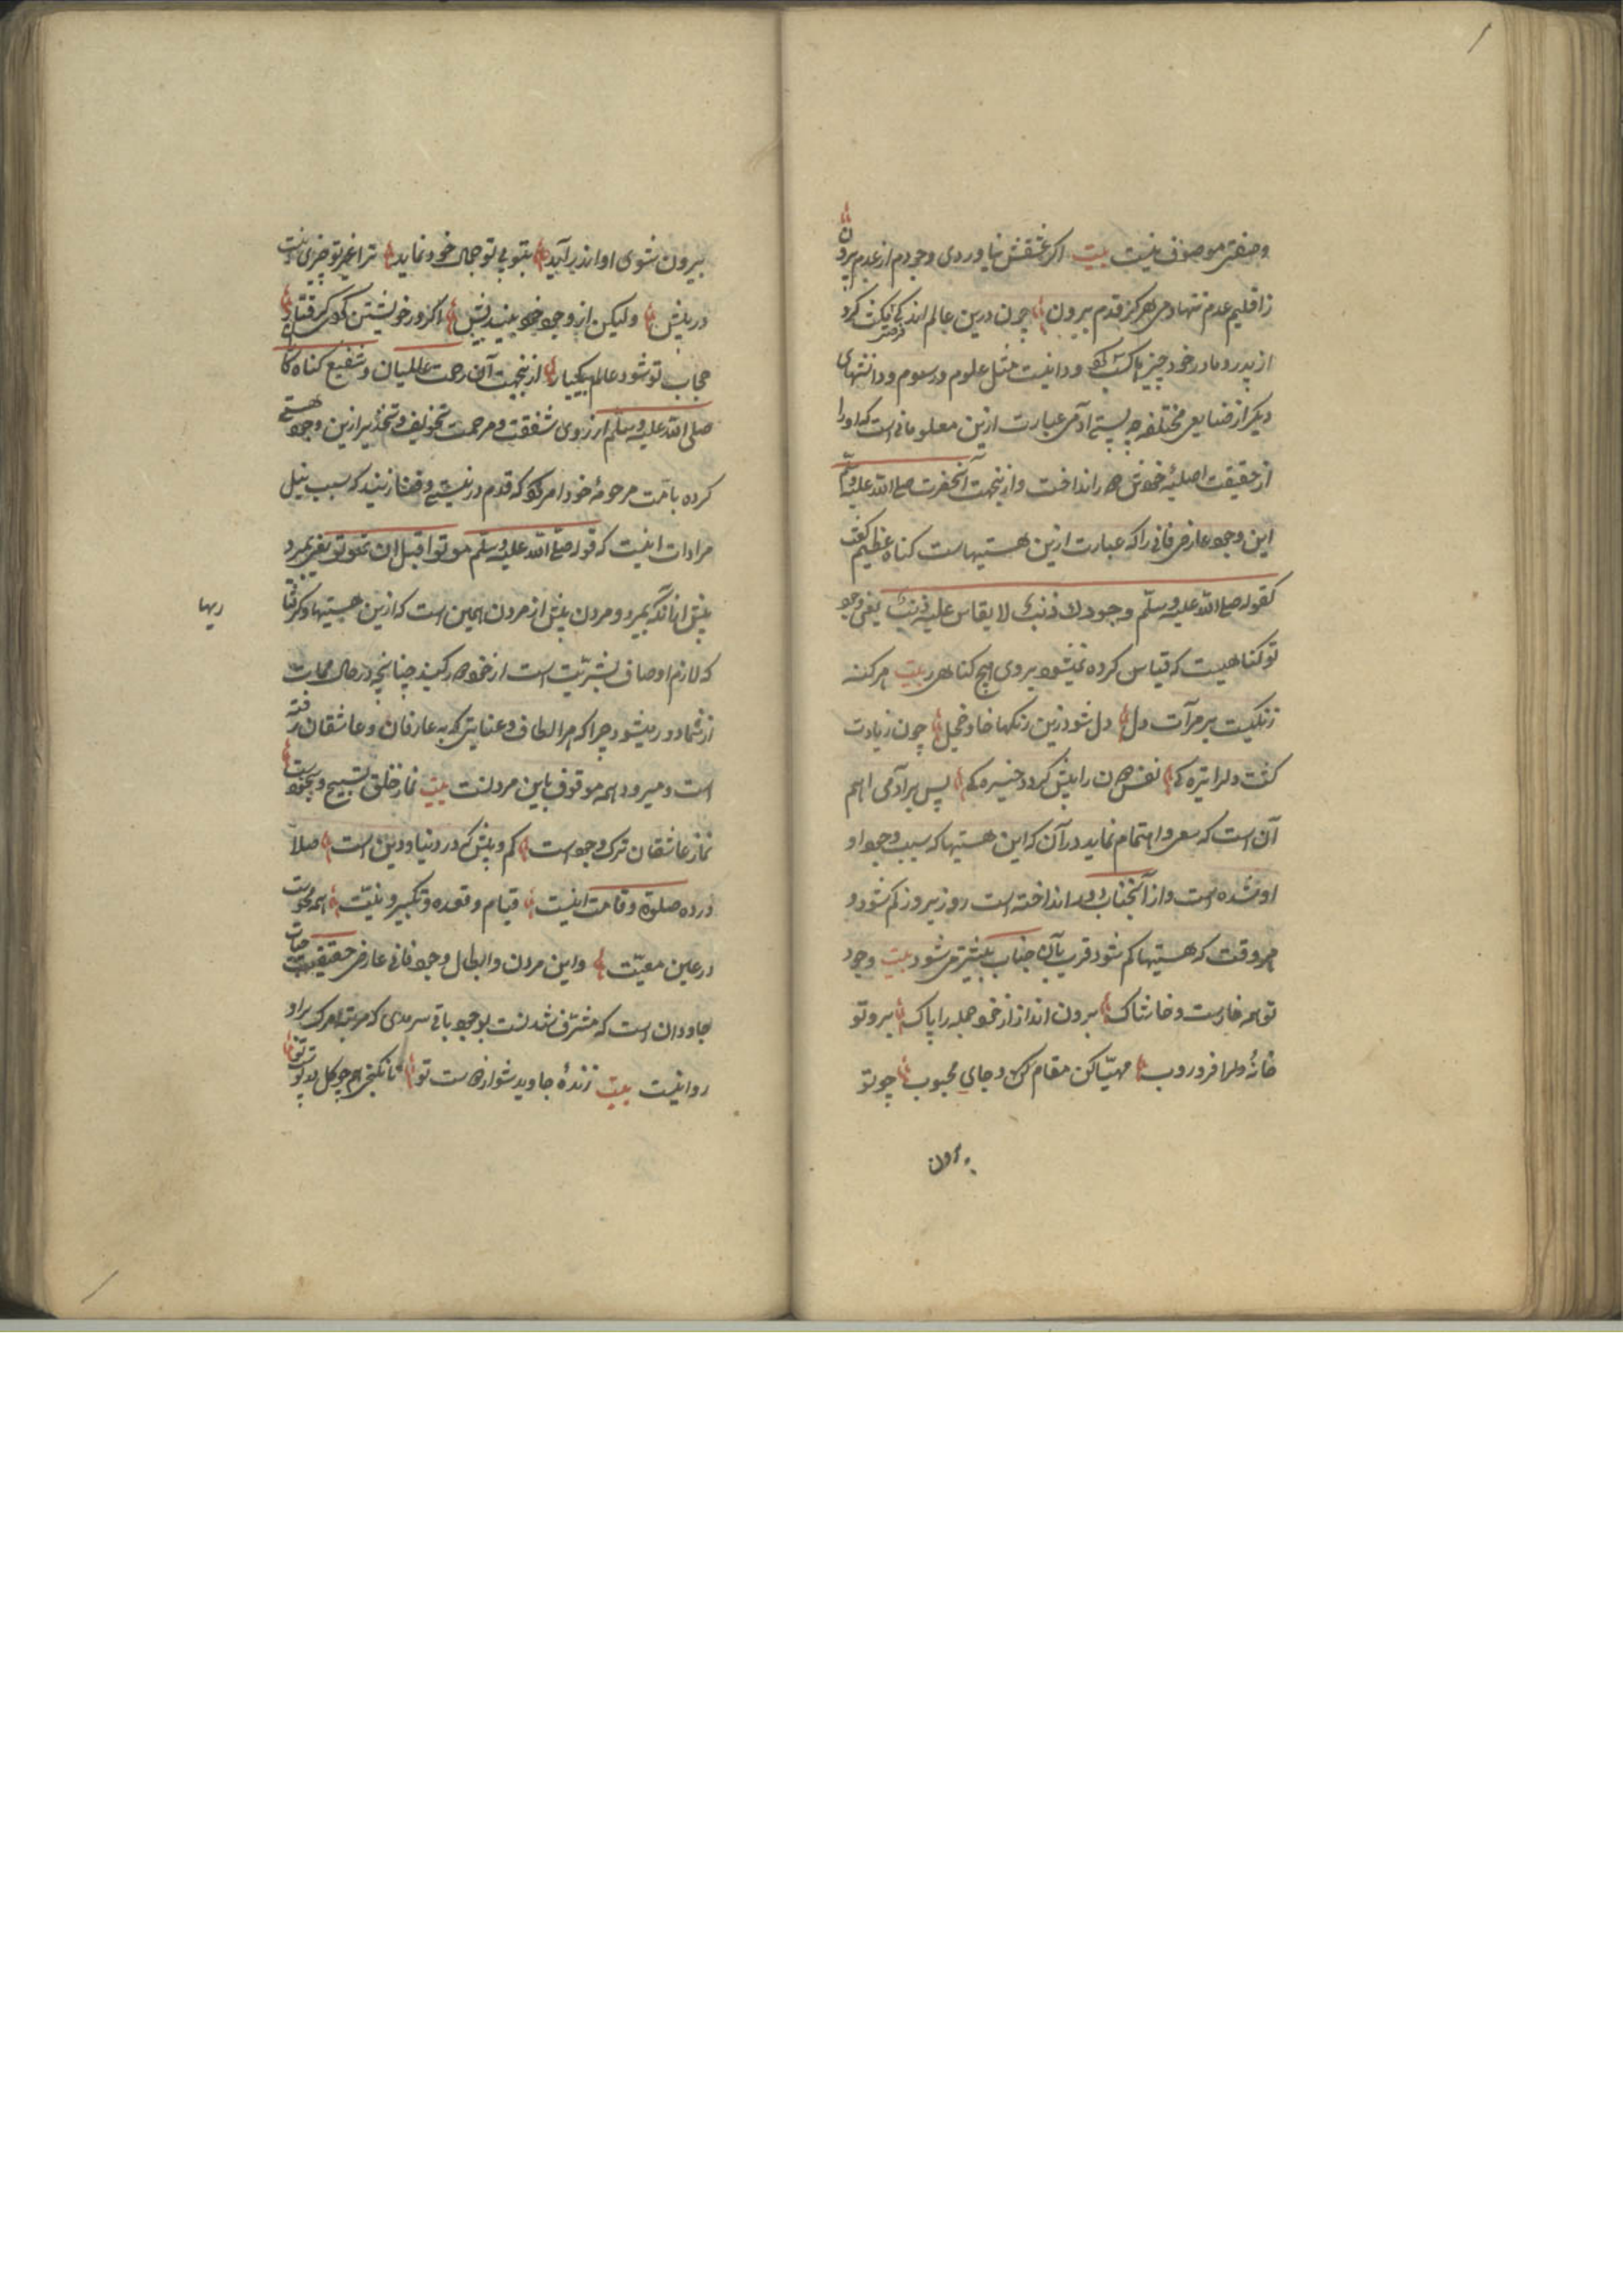 وصفتی موصوف نیست بیت اگر عشقش نیاوردی وجودم از عدم بیرون
ز اقلیم عدم ننهادمی هرگز قدم بیرون چون درین عالم اندکی مکث کرد
از پدر و مادر خود چیزها کسب کرد و دانست مثل علوم و رسوم و دانشهای
دیگر از صنایع مختلفه چه هستی آدمی عبارت ازین معلوماتی است که او را
از حقیقت اصلیه خویش دور انداخت و ازینجهت آنحضرت صلی الله علیه وسلم
این وجود عارضی فانی را که عبارت ازین هستیهاست گناه عظیم گفت
کقوله صلی الله علیه وسلم وجودک ذنبک لا یقاس علیه ذنب یعنی وجود
تو گناهیست که قیاس کرده نمیشود بروی هیچ گناهی بیت هر گنه
زنگیست بر مرآت دل دل شود زین زنگها خوار و خجل چون زیادت
گشت دل را تیرگی نفس دون را بیش گردد خیرگی پس بر آدمی اهم
آن است که سعی و اهتمام نماید در آن که این هستیها که سبب وجود او
او شده است و از آنجناب دور انداخته است روز بروز کم شود و
هر وقت که هستیها کم شود قرب بآن جناب بیشتر میشود بیت وجود
تو همه خارست و خاشاک برون انداز از خود جمله را پاک برو تو
خانۀ دل را فرو روب مهیّا کن مقام و جای محبوب چو تو
بیرون
بیرون شوی او اندر آید بتو بی تو جمال خود نماید ترا غیر تو چیزی نیست
در پیش ولیکن از وجود خود بیندیش اگر در خویشتن گردی گرفتار
حجاب تو شود عالم بیکبار ازینجهت آن رحمت عالمیان و شفیع گناه‌کاران
صلی الله علیه وسلم از روی شفقت و مرحمت تخویف و تحذیر ازین وجود هستی
کرده بامّت مرحومۀ خود امر کرد که قدم در نیستی و فنا زنید که سبب نیل
مرادات اینست که قوله صلی الله علیه وسلم موتوا قبل ان تموتوا یعنی بمیرید
پیش از آنکه بمیرید و مردن پیش از مردن همین است که ازین هستیها و گرفتا
ریها
که لازم اوصاف بشریّت است از خود دور کنید چنانچه در حال ممات
از شما دور میشود چرا که هر الطاف و عنایتی که به عارفان و عاشقان رفته
است و میرود همه موقوف باین مردنست بیت نماز خلق تسبیح و سجودست
نماز عاشقان ترک وجودست کم و بیش که در دنیا و دین است صلا
درده صلوة و قامت اینست قیام و قعده و تکبیر و نیّت همه محوست
در عین معیّت و این مردن و ابطال وجود فانی عارضی حقیقت حیات
جاودان است که مشرّف شدنست بوجود باقی سرمدی که هرگز مرگ بر او
روا نیست بیت زندۀ جاوید شو از هست تو تا نگنجد هیچ گل در پوست تو